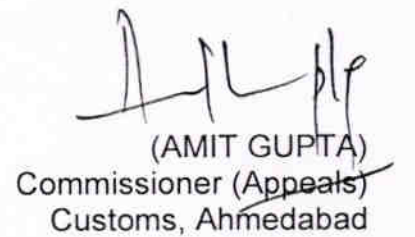 (AMIT GUPTA)
Commissioner (Appeals)
Customs, Ahmedabad